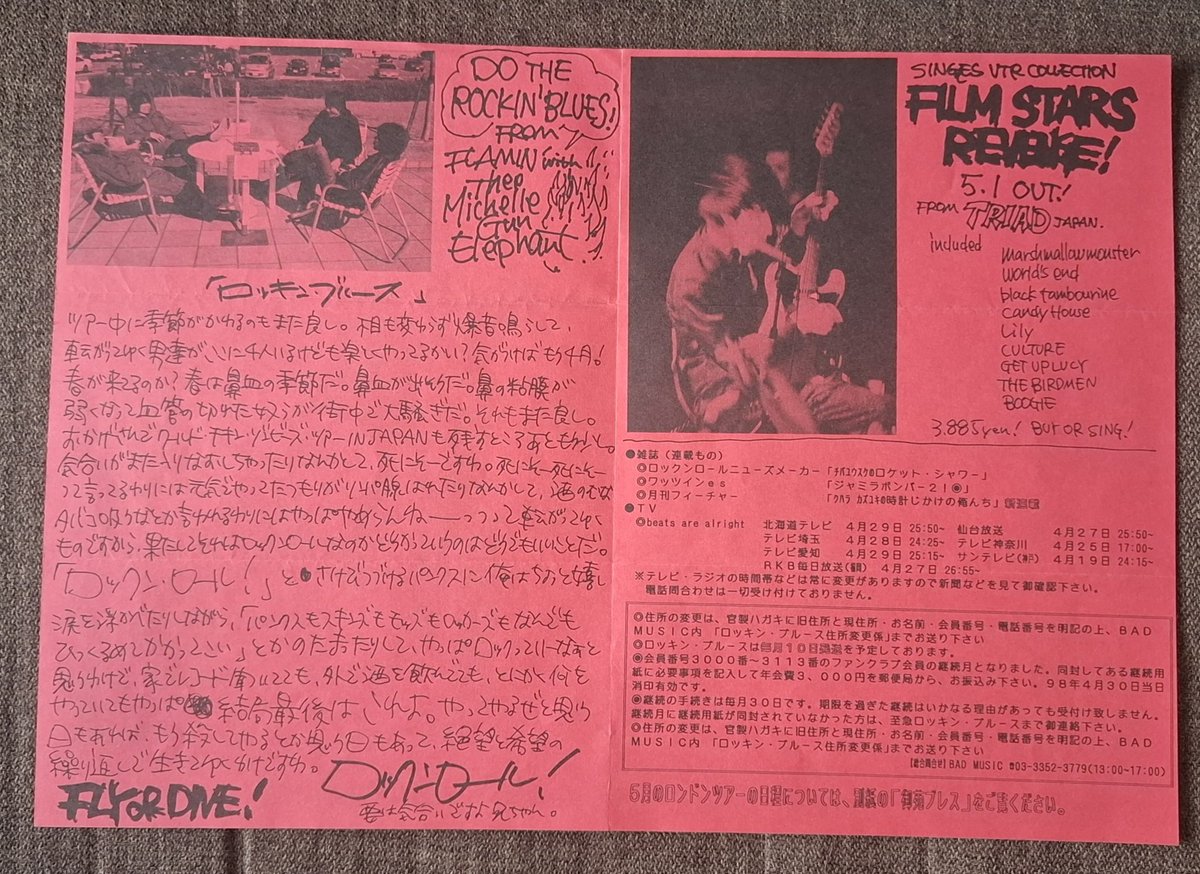 DO THE
ROCKIN' BLUES!
FROM
FLAMIN with
Thee
Michelle
Gun
Elephant
「ロッキン・ブルース」
ツアー中に季節がかわるのもまた良し。相も変わらず爆音鳴らして、
転がってゆく男達がここに4人いるけども楽しくやってるかい?気がつけばもう4月!
春が来るのか?春は鼻血の季節だ。鼻血が出そうだ。鼻の粘膜が
弱くなって血管の切れた奴らが街中で大騒ぎだ。それもまた良し。
おかげさんでワールド・チキン・ゾンビーズ・ツアー IN JAPANも残すところあともう少し。
気合いがまた入りなおしちゃったりなんかして、死にそーですわ。死にそー死にそー
って言ってるわりには元気でやってたつもりがリンパ腺はれたりなんかして、酒のむな
タバコ吸うなとか言われるわりにはやっぱやめらんねーーっつって転がってゆく
ものですから、果たしてそれはロックンロールなのかどうかっていうのはどうでもいいことだ。
「ロックン・ロール!」とさけびつづけるパンクスに俺はちょっと嬉し
涙を浮かべたりしながら、「パンクスもスキンズもモッズもロッカーズもなんでも
ひっくるめてかかってこい」とかのたまったりして、やっぱロックっていーなぁと
思うわけで、家でレコード聴いてても、外で酒を飲んでても、とにかく何を
やっていてもやっぱ結局最後はこれよ。やってやるぜと思う
日も有れば、もう殺してやるとか思う日もあって、絶望と希望の
繰り返しで生きてゆくわけですわ。
ロックンロール!
FLY OR DIVE!
要は気合いですよ兄ちゃん。
SINGES VTR COLLECTION
FILM STARS
REVENGE!
5.1 OUT!
FROM TRIAD JAPAN.
included
marshmallow monster
world's end
black tambourine
candy House
Lily
CULTURE
GET UP LUCY
THE BIRDMEN
BOOGIE
3.885yen! BUY OR SING!
●雑誌(連載もの)
◎ロックンロールニュースメーカー「チバユウスケのロケット・シャワー」
◎ワッツインes 「ジャミラボンバー2!◉」
◎月刊フィーチャー 「クハラ カズユキの時計じかけの俺んち」
●TV
◎beats are alright 北海道テレビ 4月29日 25:50~ 仙台放送 4月27日 25:50~
テレビ埼玉 4月28日 24:25~ テレビ神奈川 4月25日 17:00~
テレビ愛知 4月29日 25:15~ サンテレビ(神戸) 4月19日 24:15~
RKB毎日放送(福岡) 4月27日 26:55~
※テレビ・ラジオの時間帯などは常に変更がありますので新聞などを見て御確認下さい。
電話問合わせは一切受け付けておりません。
◎住所の変更は、官製ハガキに旧住所と現住所・お名前・会員番号・電話番号を明記の上、BAD
MUSIC内 「ロッキン・ブルース住所変更係」までお送り下さい
◎ロッキン・ブルースは毎月10日発送を予定しております。
◉会員番号3000番~3113番のファンクラブ会員の継続月となりました。同封してある継続用
紙に必要事項を記入して年会費3、000円を郵便局から、お振込み下さい。98年4月30日当日
消印有効です。
◉継続の手続きは毎月30日です。期限を過ぎた継続はいかなる理由があっても受付け致しません。
継続月に継続用紙が同封されていなかった方は、至急ロッキン・ブルースまで御連絡下さい。
◎住所の変更は、官製ハガキに旧住所と現住所・お名前・会員番号・電話番号を明記の上、BAD
MUSIC内 「ロッキン・ブルース住所変更係」までお送り下さい
【総合問合せ】BAD MUSIC ☎03-3352-3779(13:00~17:00)
5月のロンドンツアーの日程については、別紙の「御苑プレス」をご覧ください。